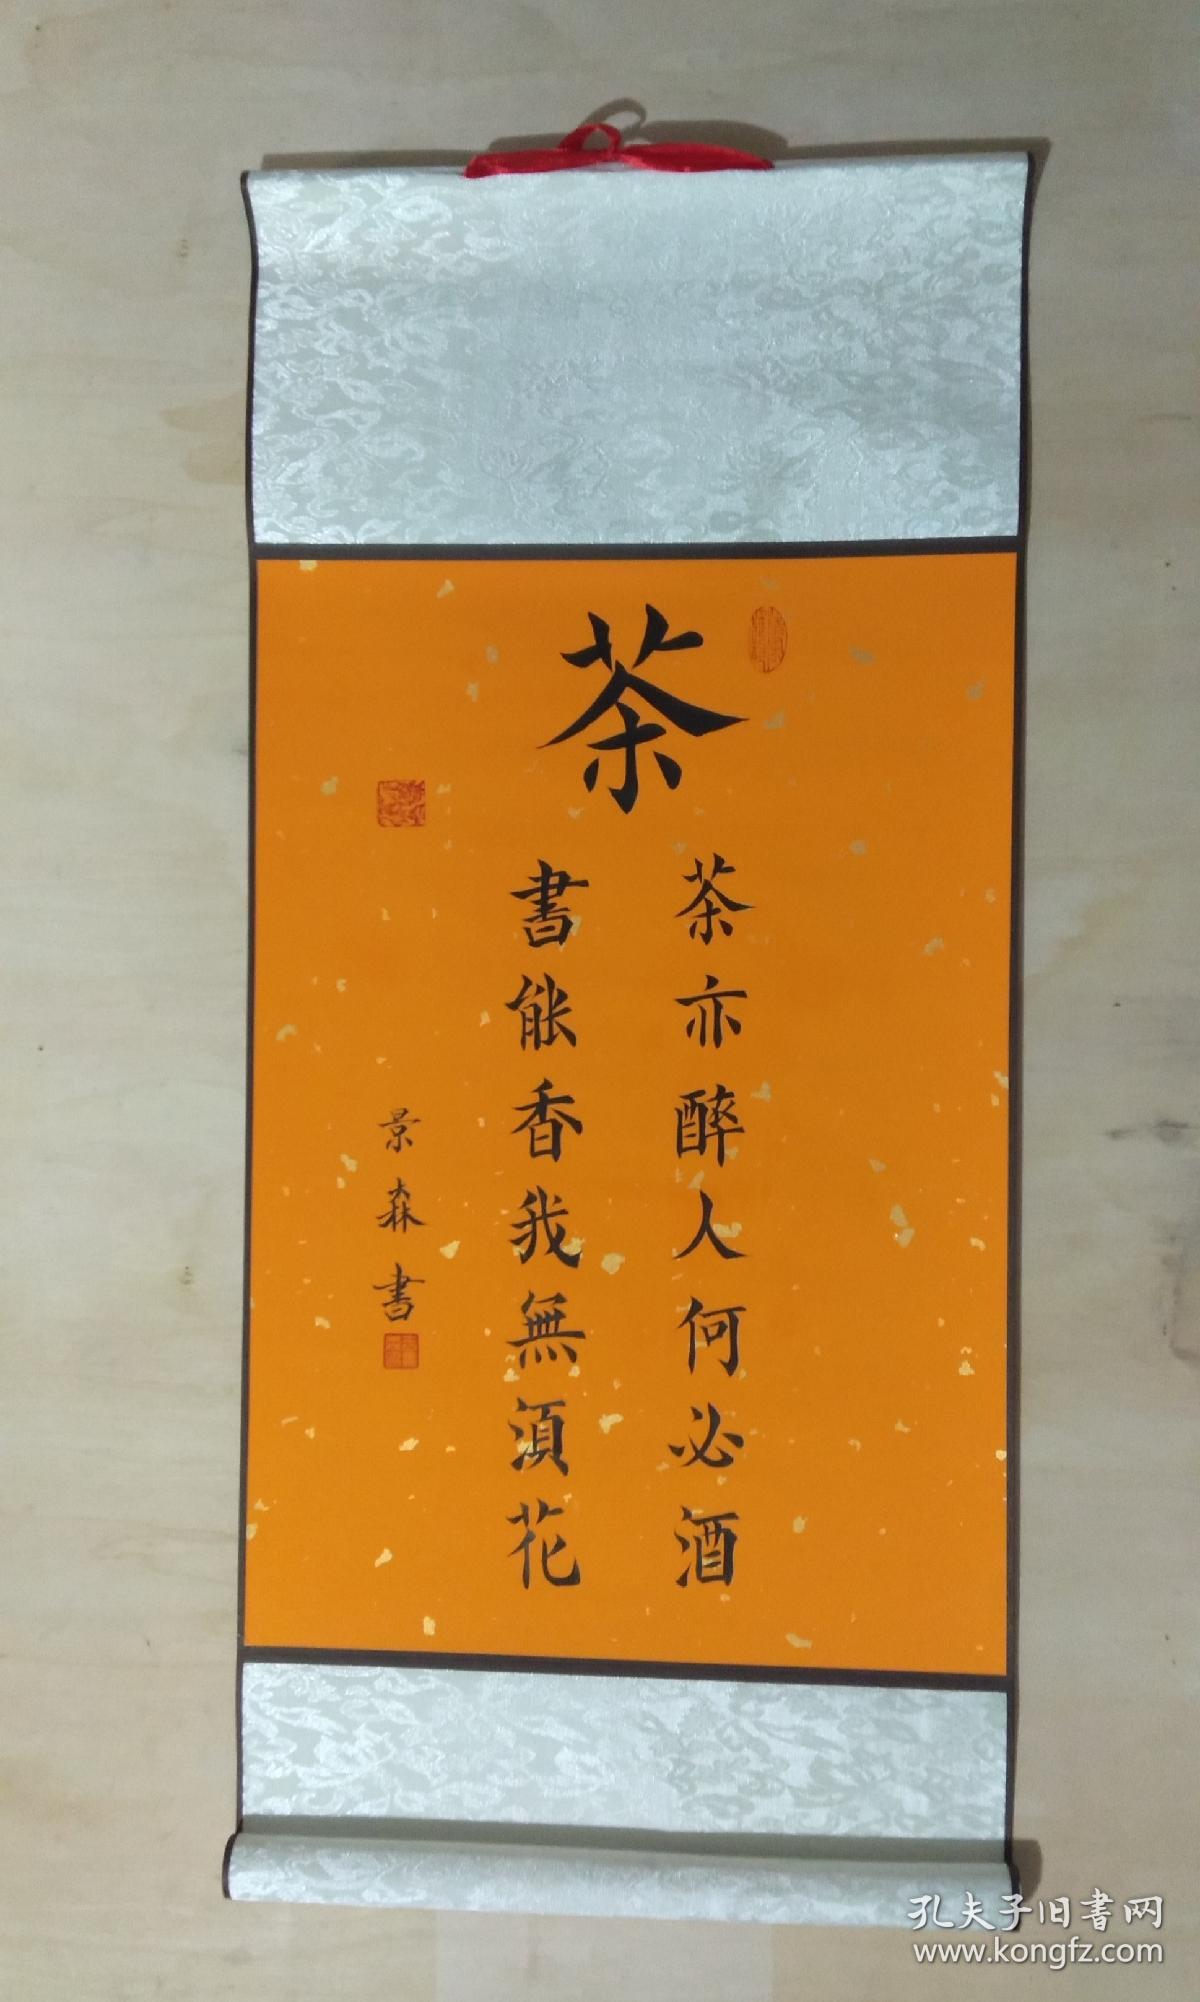 茶
茶亦醉人何必酒
書能香我無須花
景森書
孔夫子旧書网
www.kongfz.com